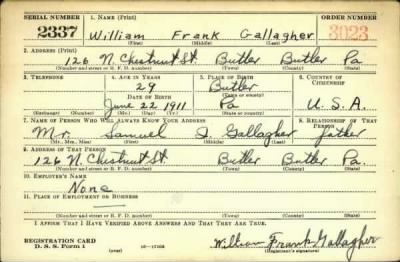 SERIAL NUMBER 1. NAME (Print) ORDER NUMBER
2337 William Frank Gallagher 3023
(First) (Middle) (Last)
2. ADDRESS (Print)
126 N. Chestnut St. Butler Butler Pa.
(Number and street or R. F. D. number) (Town) (County) (State)
3. TELEPHONE 4. AGE IN YEARS 5. PLACE OF BIRTH 6. COUNTRY OF CITIZENSHIP
29 Butler
(Town or county)
DATE OF BIRTH
June 22 1911 Pa U.S.A.
(Exchange) (Number) (Mo.) (Day) (Yr.) (State or country)
7. NAME OF PERSON WHO WILL ALWAYS KNOW YOUR ADDRESS 8. RELATIONSHIP OF THAT PERSON
Mr. Samuel Gallagher father
(Mr., Mrs., Miss) (First) (Middle) (Last)
9. ADDRESS OF THAT PERSON
126 N. Chestnut St. Butler Butler Pa.
(Number and street or R. F. D. number) (Town) (County) (State)
10. EMPLOYER'S NAME
None
11. PLACE OF EMPLOYMENT OR BUSINESS
(Number and street or R. F. D. number) (Town) (County) (State)
I AFFIRM THAT I HAVE VERIFIED ABOVE ANSWERS AND THAT THEY ARE TRUE.
REGISTRATION CARD
D. S. S. Form 1 (over) William Frank Gallagher
(Registrant's signature)